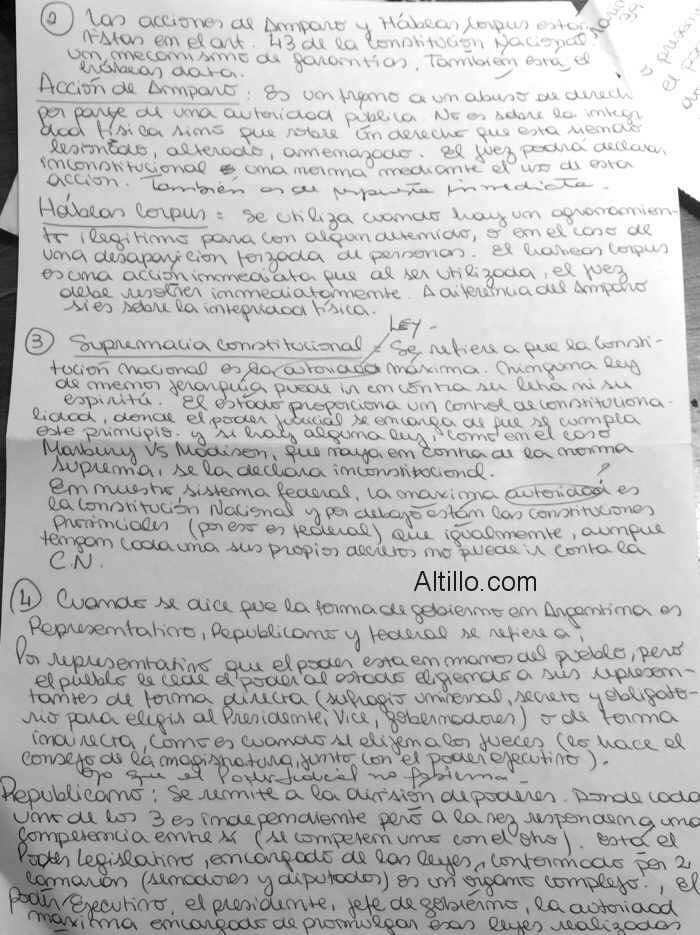 2) Las acciones de Amparo y Hábeas Corpus están
vistas en el art. 43 de la Constitución Nacional.
un mecanismo de garantías. También está el
hábeas data.
Acción de Amparo: Es un freno a un abuso de derech
por parte de una autoridad pública. No es sobre la integri
dad física sino que sobre un derecho que esta siendo
lesionado, alterado, amenazado. El juez podrá declarar
inconstitucional una norma mediante el uso de esta
acción. También es de respuesta inmediata.
Hábeas Corpus = Se utiliza cuando hay un agravamien-
to ilegítimo para con algún detenido, o en el caso de
una desaparición forzada de personas. El habeas corpus
es una acción inmediata que al ser utilizada, el juez
debe resolver inmediatamente. A diferencia del Amparo
si es sobre la integridad física.
LEY.
3) Supremacía constitucional = Se refiere a que la Consti-
tución nacional es la autoridad máxima. Ninguna ley
de menos jerarquía puede ir en contra su letra ni su
espíritu. El estado proporciona un control de constituciona-
lidad, donde el poder judicial se encarga de que se cumpla
este principio. y si hay alguna ley, como en el caso
Marbury vs Madison, que vaya en contra de la norma
suprema, se la declara inconstitucional.
?
En nuestro sistema federal, la máxima autoridad es
la Constitución Nacional y por debajo están las constituciones
Provinciales (por eso es federal) que igualmente, aunque
tengan cada una sus propios decretos no puede ir contra la
C.N.
Altillo.com
4) Cuando se dice que la forma de gobierno en Argentina es
Representativo, Republicano y federal se refiere a:
Por representativo que el poder esta en manos del pueblo, pero
el pueblo le cede el poder al estado eligiendo a sus represen-
tantes de forma directa (sufragio universal, secreto y obligato-
rio para elegir al Presidente, Vice, gobernadores) o de forma
indirecta, como es cuando se elijen a los jueces (lo hace el
consejo de la magistratura, junto con el poder ejecutivo).
Ojo que el Poder Judicial no gobierna.
Republicano: Se remite a la división de poderes. Donde cada
uno de los 3 es independiente pero a la vez responden a una
competencia entre sí (se competen uno con el otro). Está el
Poder Legislativo, encargado de las leyes, conformado por 2
camaras (senadores y diputados) es un órgano complejo., el
poder Ejecutivo, el presidente, jefe de gobierno, la autoridad
máxima encargado de promulgar esas leyes realizadas